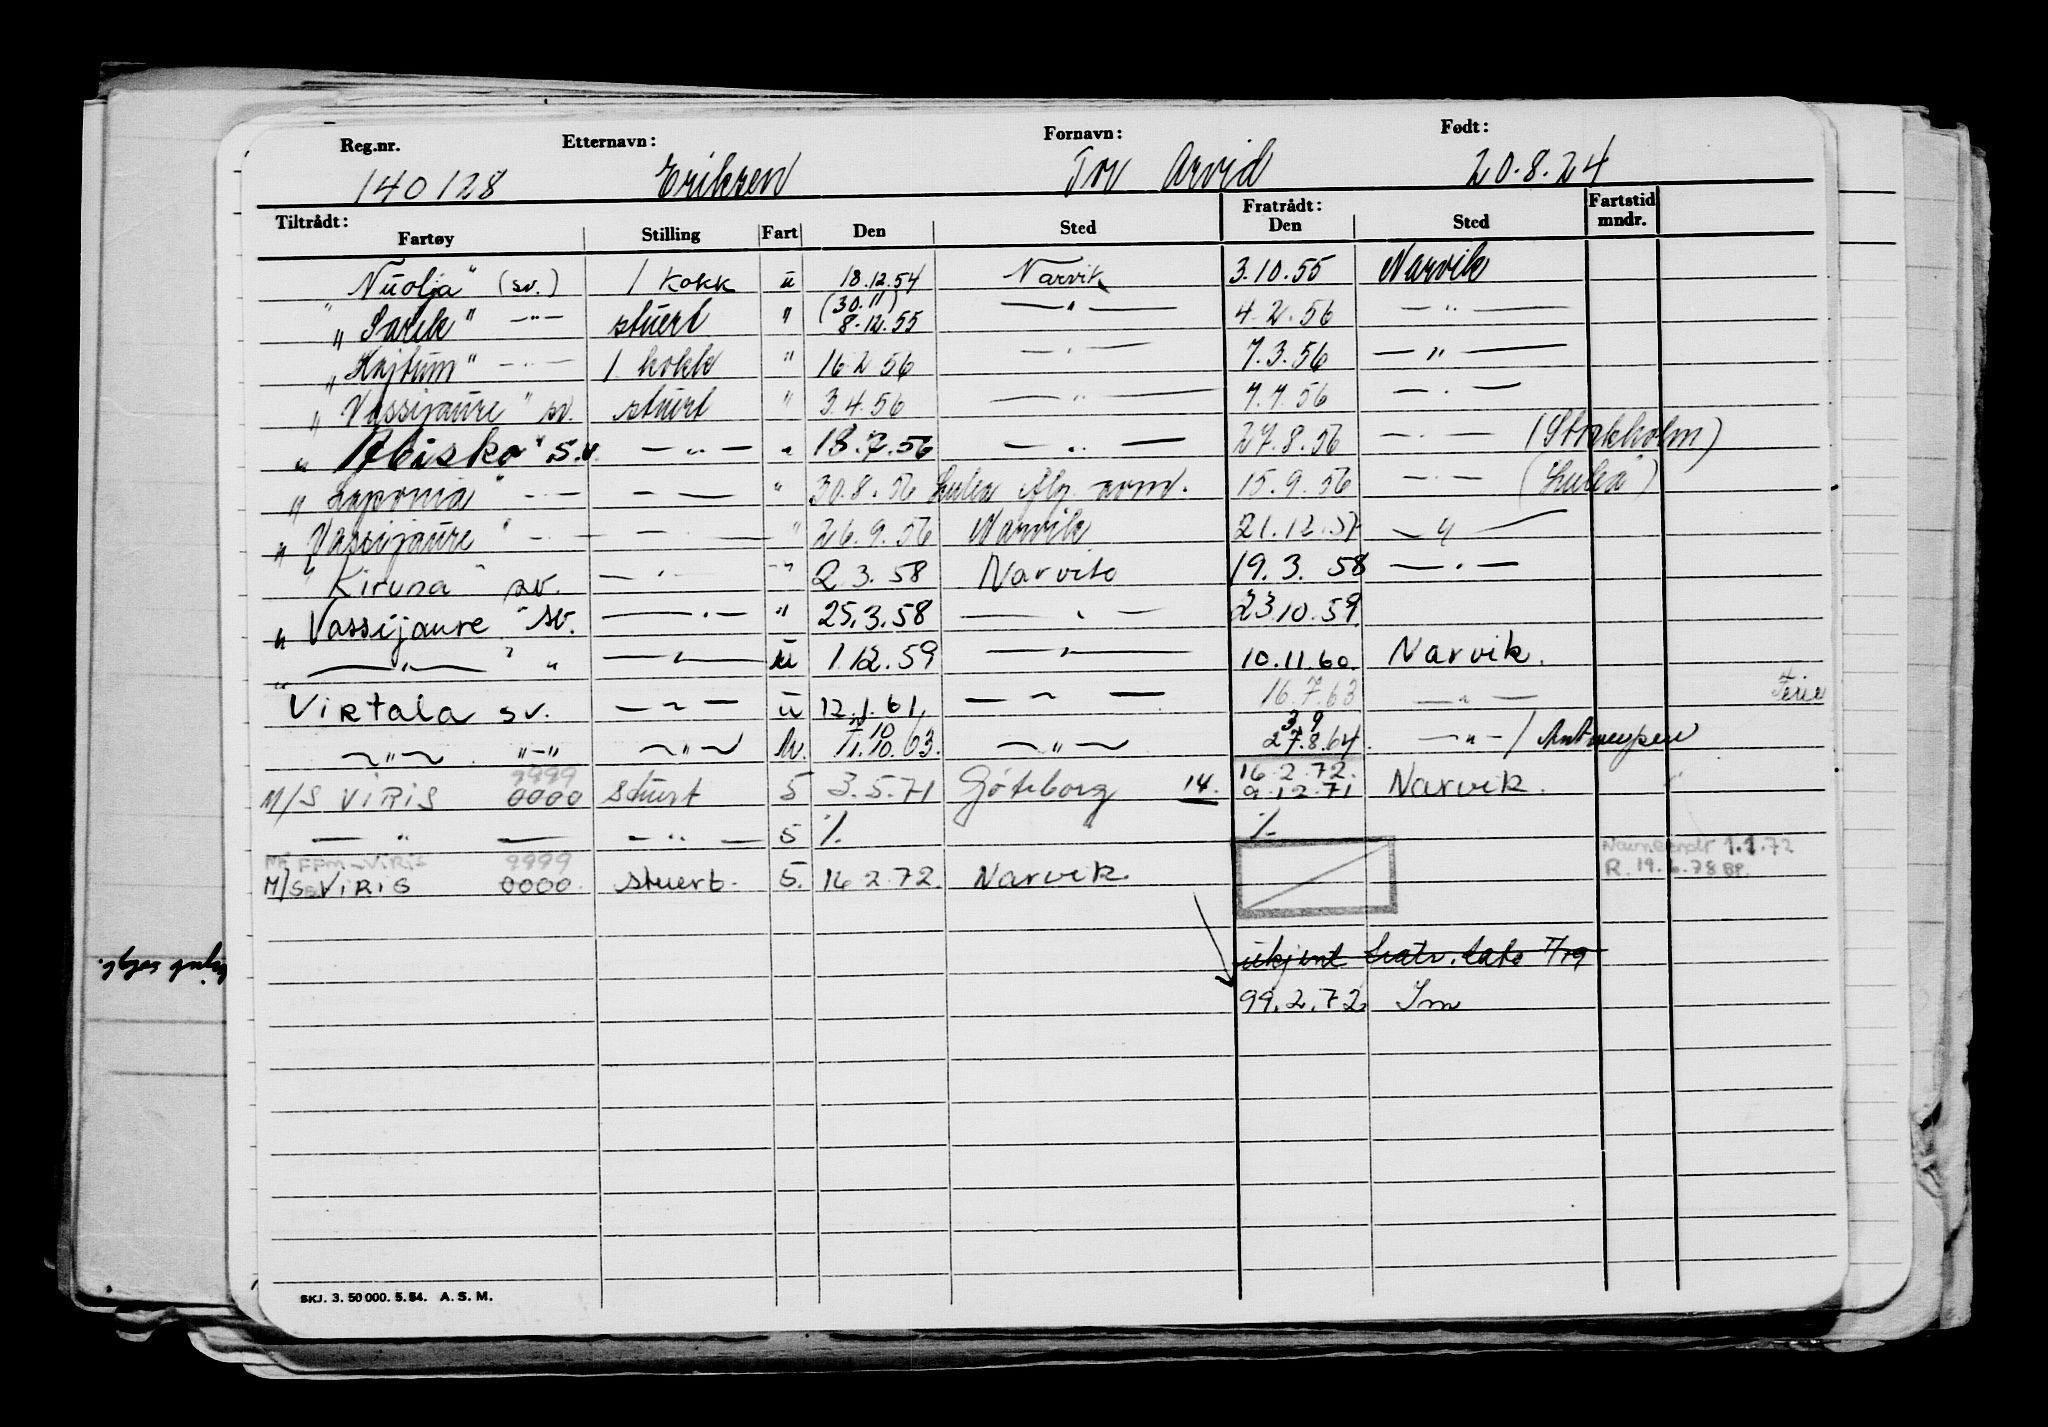 Reg.nr. Etternavn: Fornavn: Født:
140128 Eriksen Tor Arvid 20.8.24
Tiltrådt: Fratrådt: Fartstid
Fartøy Stilling Fart Den Sted Den Sted mndr.
"Nuolja" (sv.) 1 kokk u 18.12.54 Narvik 3.10.55 Narvik
"Sarek" —"— stuert " (30.11) 8.12.55 —"— 4.2.56 —"—
"Kajtum" —"— 1 kokk " 16.2.56 —"— 7.3.56 —"—
"Vassijaure" sv. stuert " 3.4.56 —"— 7.7.56 —"—
"Abisko" s.v. —"— " 13.7.56 —"— 27.8.56 —"— (Stockholm)
"Laponia" —"— —"— " 30.8.56 Luleå 15.9.56 —"— (Luleå)
"Vassijaure" —"— —"— " 26.9.56 Narvik 21.12.57 —"—
"Kiruna" sv. —"— —"— 2.3.58 Narvik 19.3.58 —"—
"Vassijaure" sv. —"— " 25.3.58 —"— 23.10.59
"—"—" " —"— u 1.12.59 —"— 10.11.60 Narvik.
Virtala sv. —"— u 12.1.61 —"— 16.7.63 —"— Ferie
—"— "—" —"— 10
11.10.63. —"— 3.9
27.8.64. —"—/Antwerpen
M/S VIRIS 9999
0000 stuert 5 3.5.71 Göteborg 14. 16.2.72.
9.12.71 Narvik.
—"— —"— 5 %. %
FFM-VIRIS 9999 1.1.72
M/S VIRIS 0000. stuert. 5. 16.2.72. Narvik. R. 19.6.78 BP.
ukjent fratr. dato
99.2.72
SKJ. 3. 50 000. 5. 54. A. S. M.